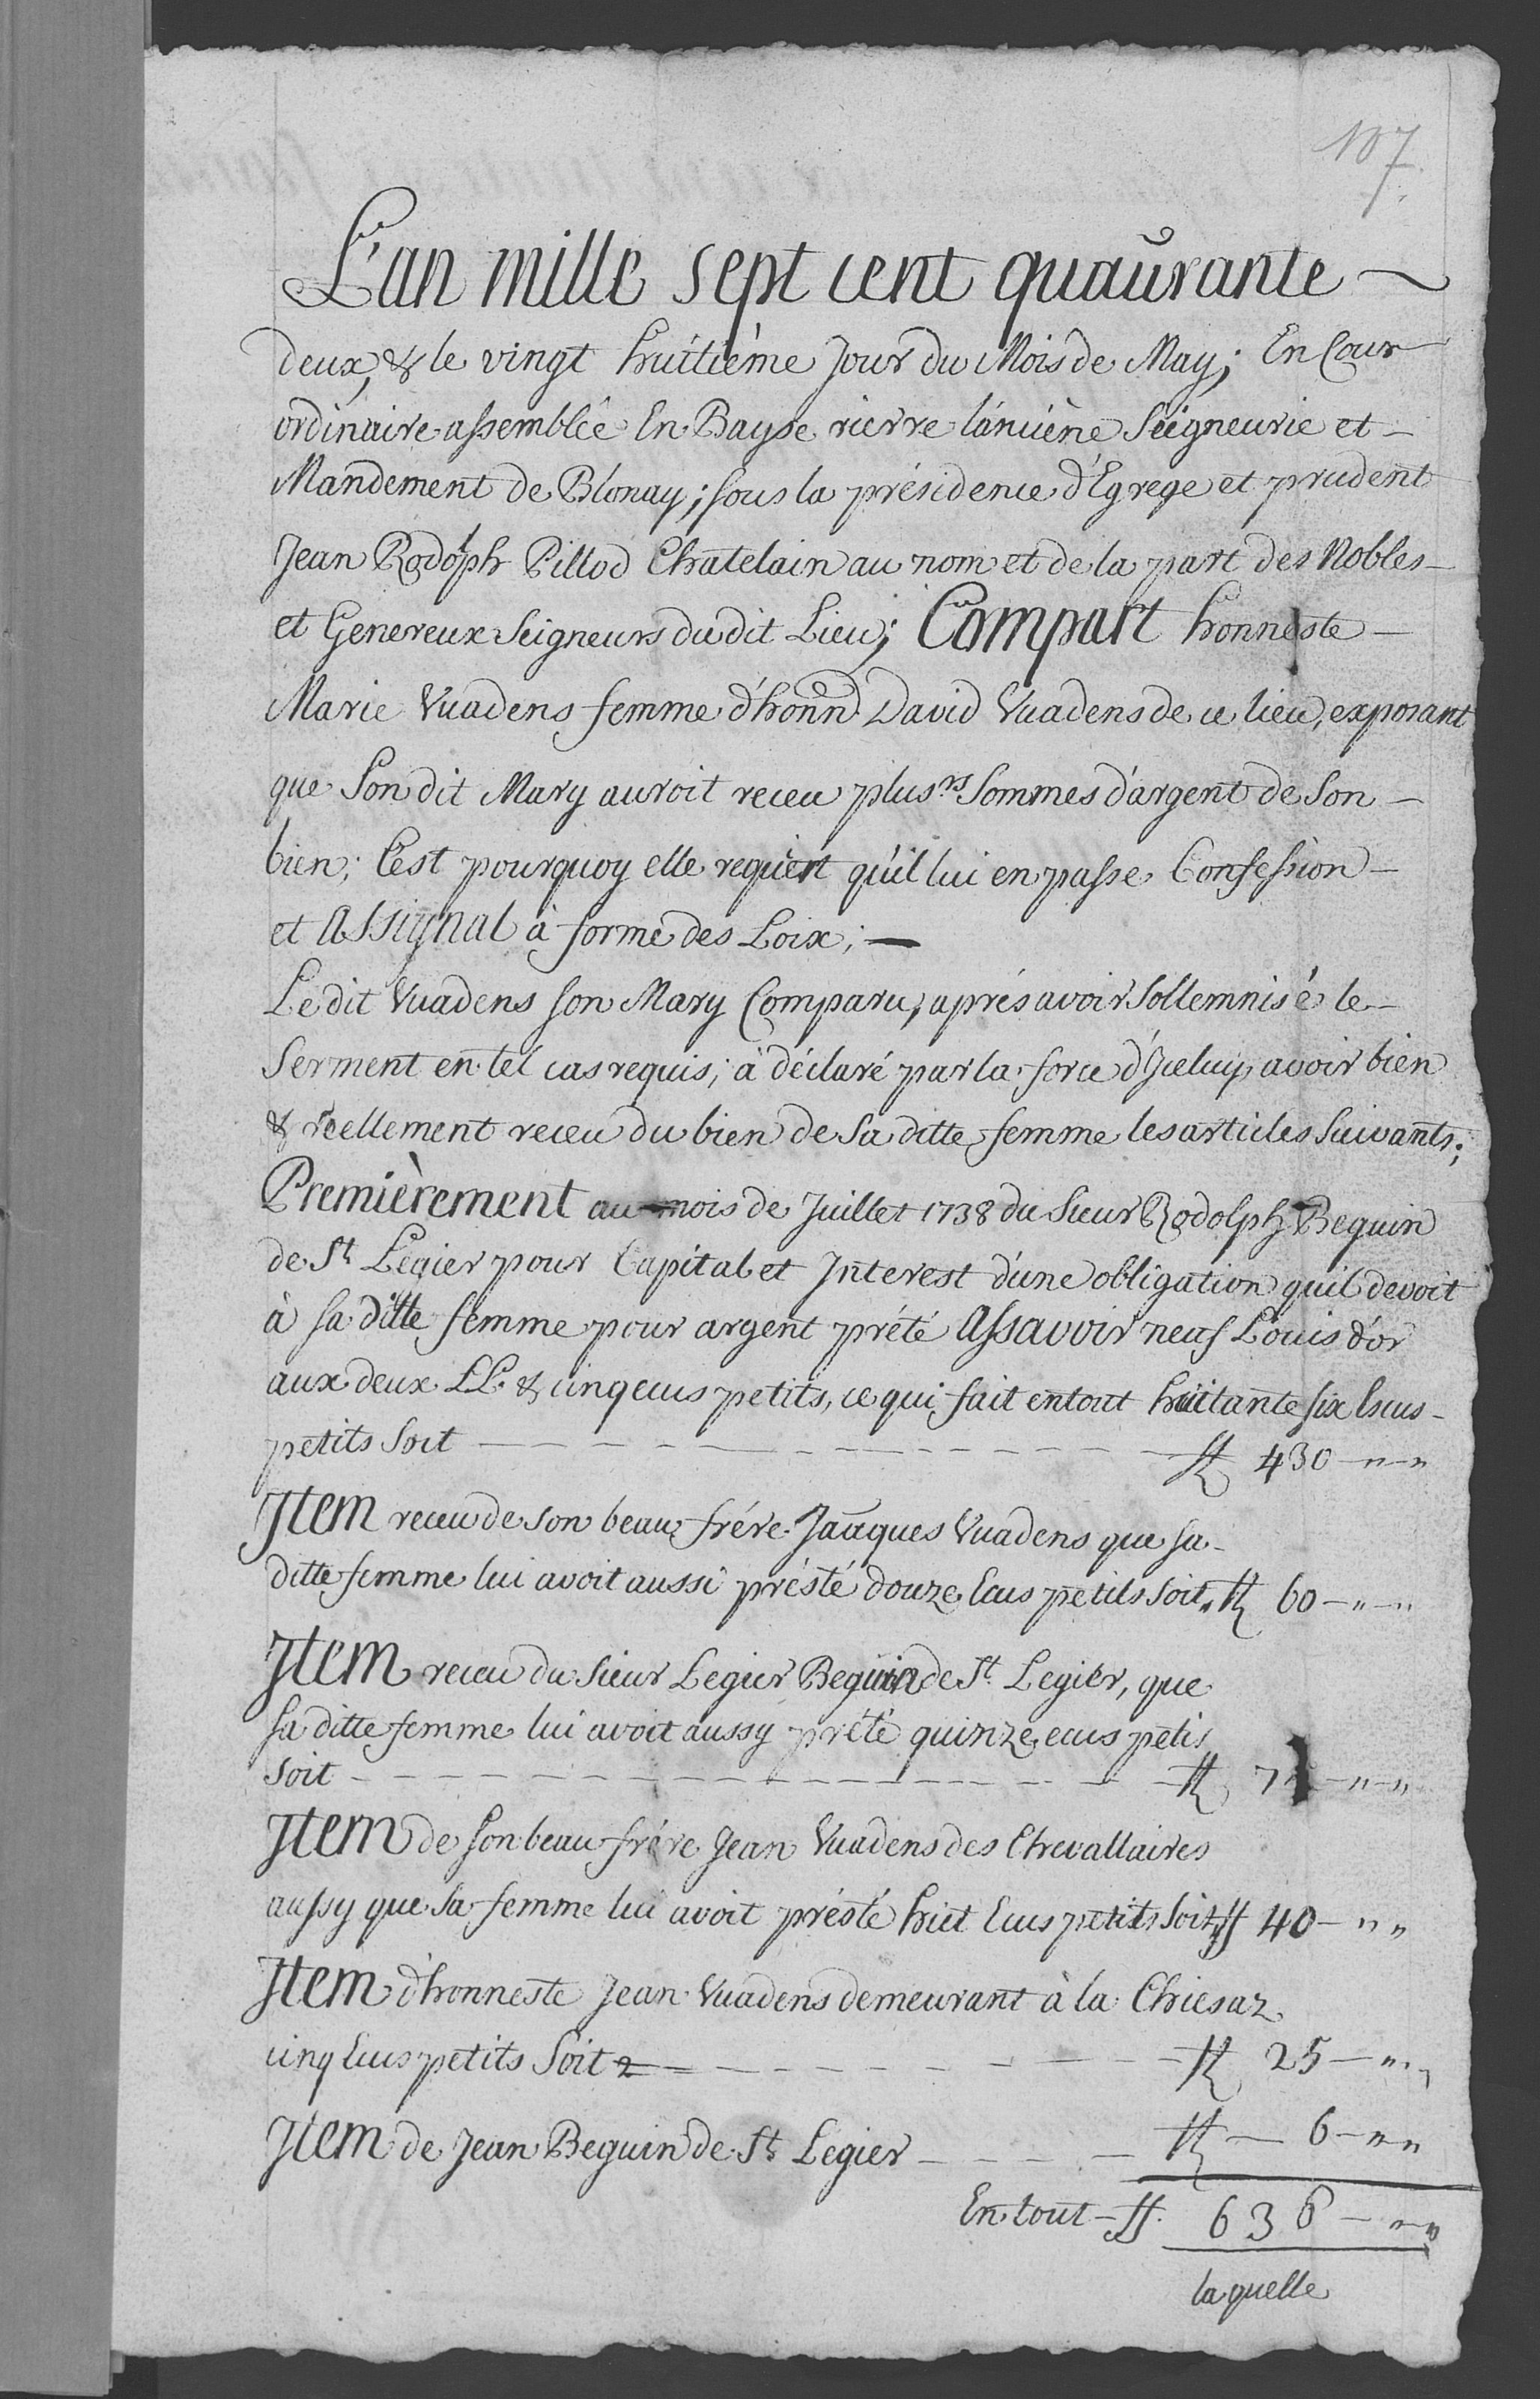 107.
L'an mille sept cent quaurante
deux, & le vingt huitiéme Jour du Mois de May; En Cour
ordinaire assemblée En Bayse rierre l'ancienne Seigneurie et
Mandement de Blonay; sous la présidence d'Egrege et prudent
Jean Rodolph Pillod Chatelain au nom et de la part des Nobles
et Genereux Seigneurs du dit Lieu; Compart honneste
Marie Vuadens femme d'honn. David Vuadens de ce lieu, exposant
que Son dit Mary auroit receu plus.rs Sommes d'argent de Son
bien; C'est pourquoy elle requiert qu'il lui en passe Confession
et Assignal à forme des Loix;
Le dit Vuadens son Mary Comparu, aprés avoir Sollemnisé le
Serment en tel cas requis; à déclaré par la force d'Iceluy avoir bien
& réellement receu du bien de Sa ditte femme les articles Suivants;
Premièrement au mois de Juillet 1738 du Sieur Rodolph Beguin
de St. Legier pour Capital et Interest d'une obligation quil devoit
à sa ditte femme pour argent prété Assavoir neuf Louis d'or
aux deux LL. & cinq ecus petits, ce qui fait en tout huittante six Escus
petits Soit ff 430 - " - "
Item receu de son beau frére Jaäques Vuadens que sa
ditte femme lui avoit aussi présté douze Ecus petits Soit ff 60 - " - "
Item receu du Sieur Legier Beguin de St. Legier, que
sa ditte femme lui avoit aussy prété quinze ecus petis
Soit ff 75 - " - "
Item de son beau frére Jean Vuadens des Chevallaires
aussy que sa femme lui avoit présté huit Ecus petits Soit ff 40 - " "
Item d'honneste Jean Vuadens demeurant à la Chiesaz
cinq Ecus petits Soit ff 25 - " "
Item de Jean Beguin de St. Legier ff 6 - " "
En tout ff. 636 - " "
laquelle